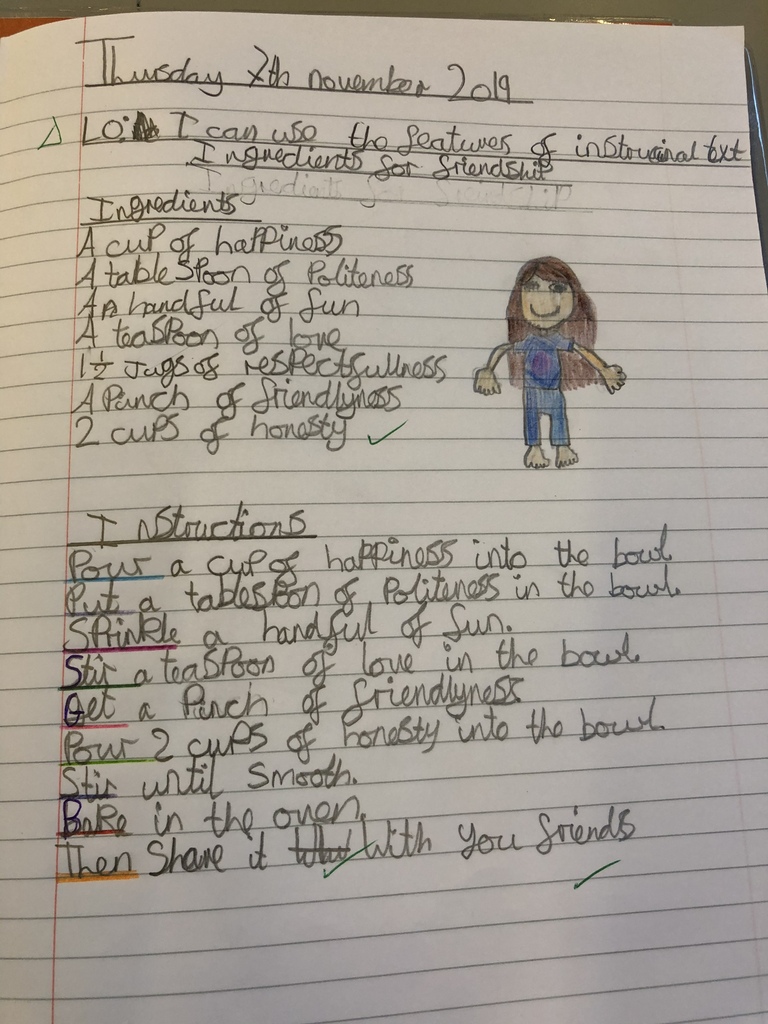 Thursday 7th november 2019
LO: I can use the features of instrucinal text
Ingredients for friendship
Ingredients for friendship
Ingredients
A cup of happiness
A table spoon of Politeness
An handful of fun
A teaspoon of love
1½ Jugs of respectfullness
A Pinch of friendlyness
2 cups of honesty
Instructions
Pour a cup of happiness into the bowl
Put a tablespoon of Politeness in the bowl.
Sprinkle a handful of fun.
Stir a teaspoon of love in the bowl.
Get a Pinch of friendlyness
Pour 2 cups of honesty into the bowl.
Stir until smooth.
Bake in the oven.
Then Share it With you friends